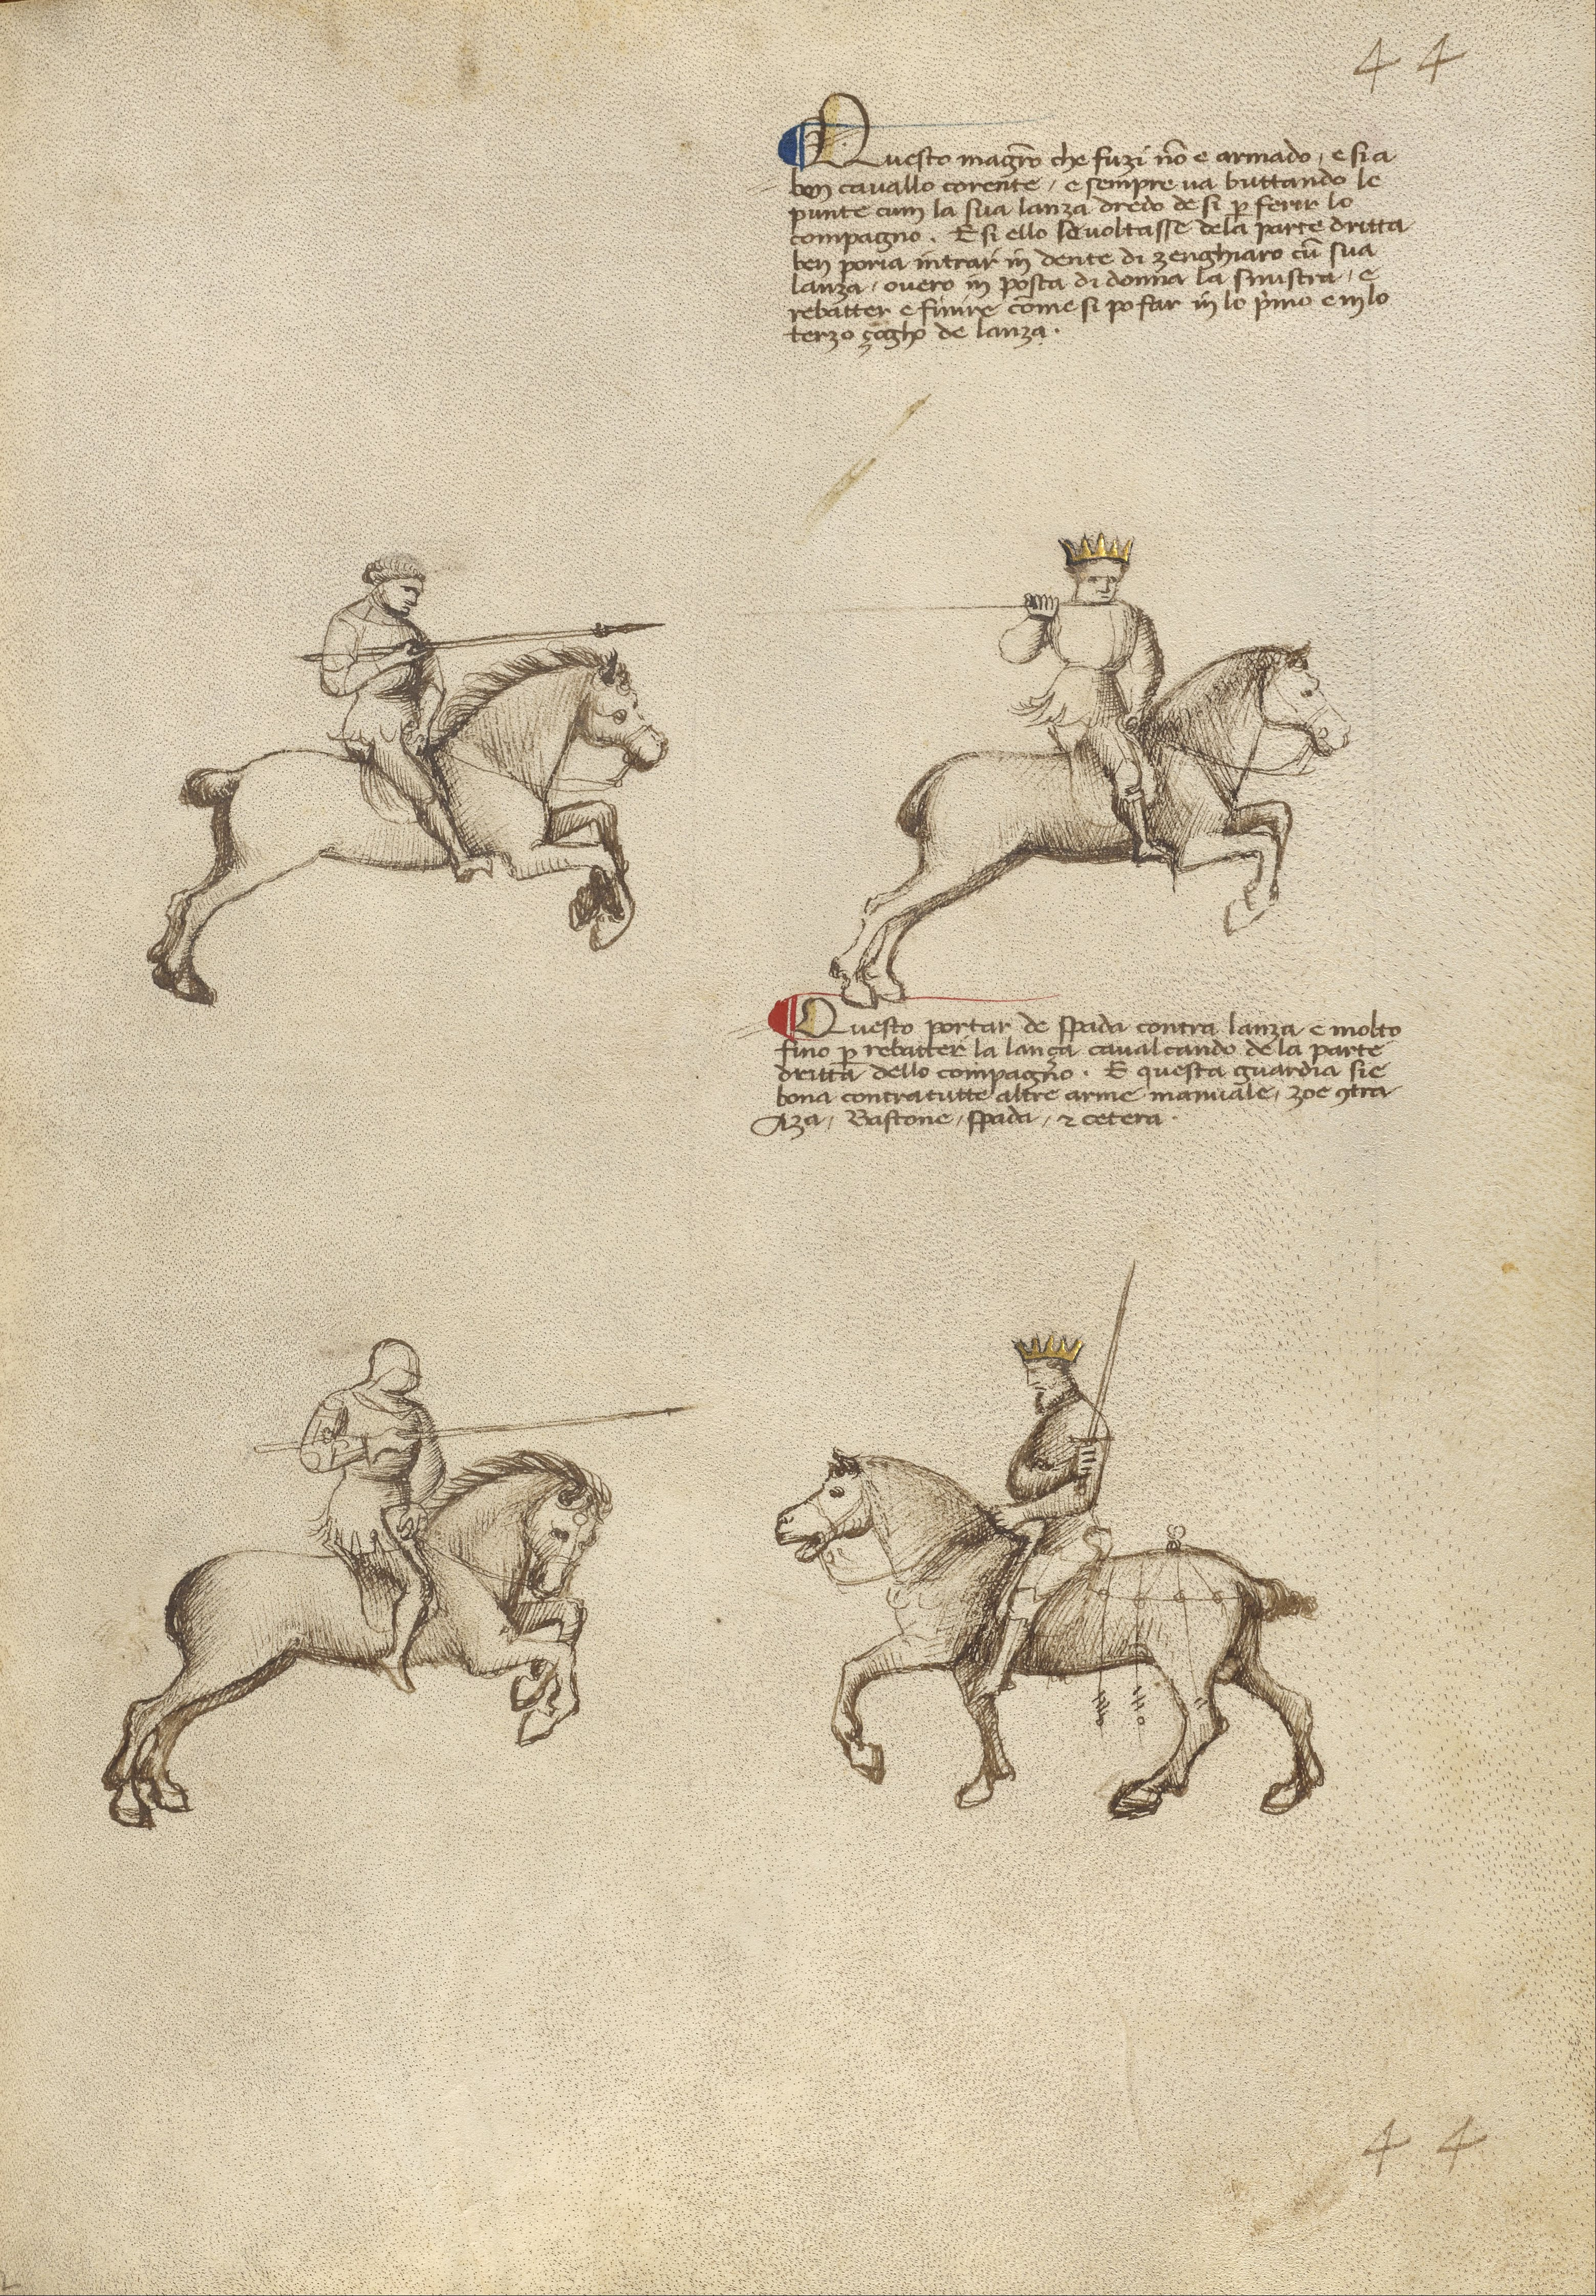 44
Questo magr̃o che fuzi nõ e armado, e si a
ben cavallo corente, e sempre va buttando le
punte cum la sua lanza dredo de si p ferir lo
compagno. E si ello se voltasse de la parte dritta
ben poria intrar in dente di zenghiaro cũ sua
lanza, overo in posta di donna la sinistra, e
rebatter e finire come si po far in lo p̃mo e in lo
terzo çogho de lanza.
Questo portar de spada contra lanza e molto
fino p rebatter la lança cavalcando de la parte
dritta dello compagno. E questa guardia sie
bona contra tutte altre arme manuale, zoe 9tra
Aza, Bastone, spada, & cetera.
44